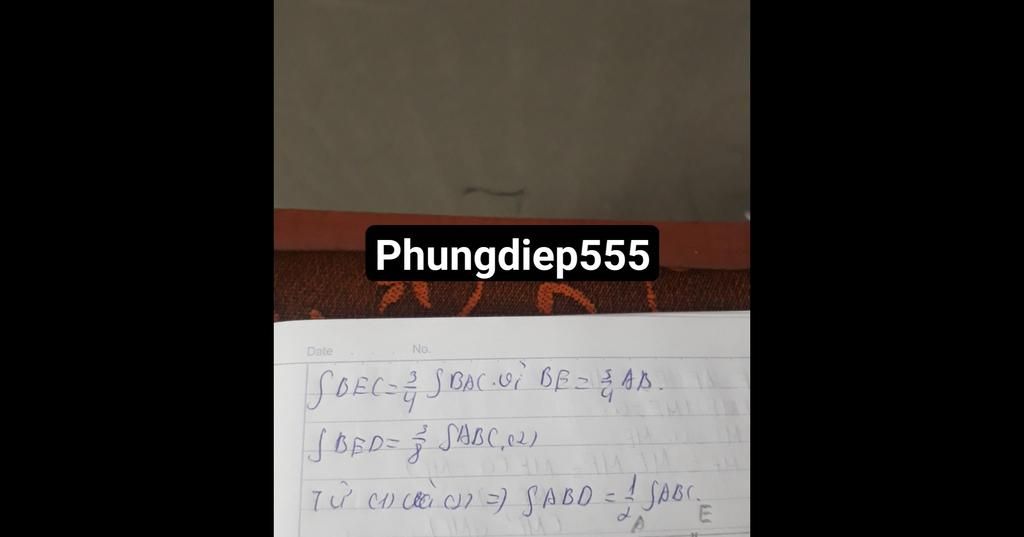 Phungdiep555
Date No.
∫BEC = 3/4 ∫BAC. vì BE = 3/4 AB.
∫BED = 3/8 ∫ABC. (2)
Từ (1) và (2) => ∫ABD = 1/2 ∫ABC.
E